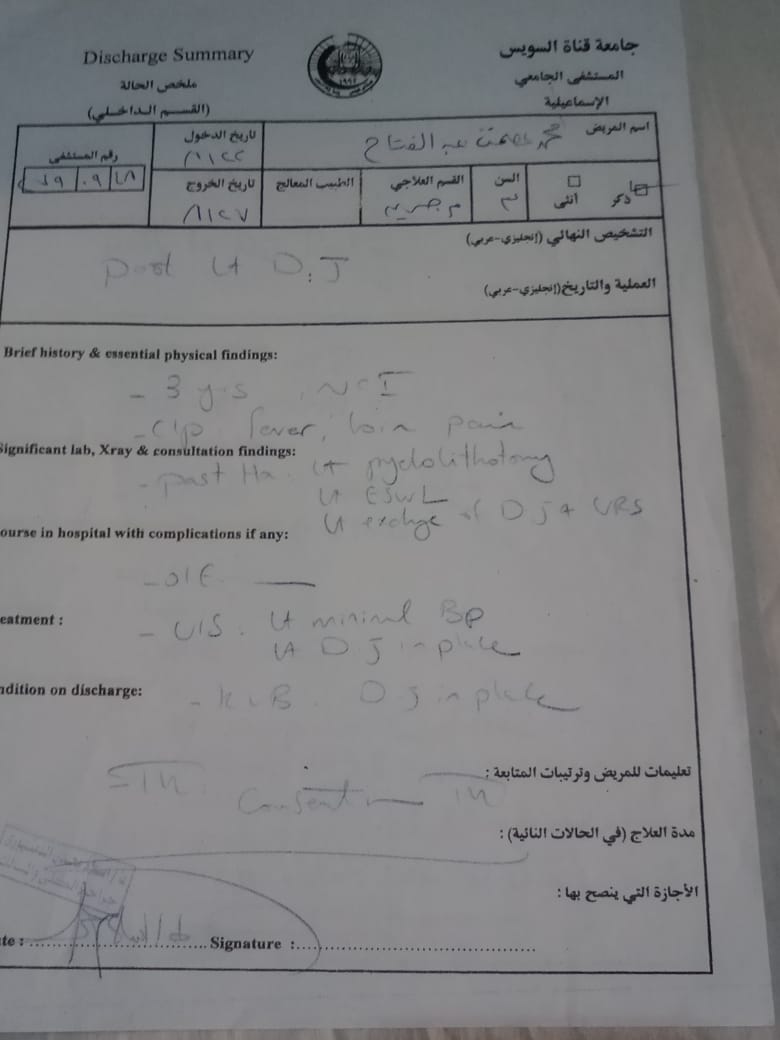 Discharge Summary
ملخص الحالة
(القسم الداخلي)
جامعة قناة السويس
المستشفى الجامعي
الإسماعيلية
اسم المريض
عبد الفتاح
تاريخ الدخول
٨/٢٢
رقم المستشفى
ذكر
أنثى
السن
٣
القسم العلاجي
الطبيب المعالج
تاريخ الخروج
٨/٢٧
التشخيص النهائي (إنجليزي-عربي)
post Lt D.J
العملية والتاريخ(إنجليزي-عربي)
Brief history & essential physical findings:
- 3 yrs
- C/p. fever, loin pain
Significant lab, Xray & consultation findings:
- past Hx. Lt pyelolithotomy
Lt ESWL
Lt exchge of DJ + URS
ourse in hospital with complications if any:
- O/E
eatment :
- U/S. Lt minimal Bp
Lt D.J in place
ndition on discharge:
- KUB. DJ in place
تعليمات للمريض وترتيبات المتابعة :
مدة العلاج (في الحالات النائية) :
الأجازة التي ينصح بها :
te : Signature :